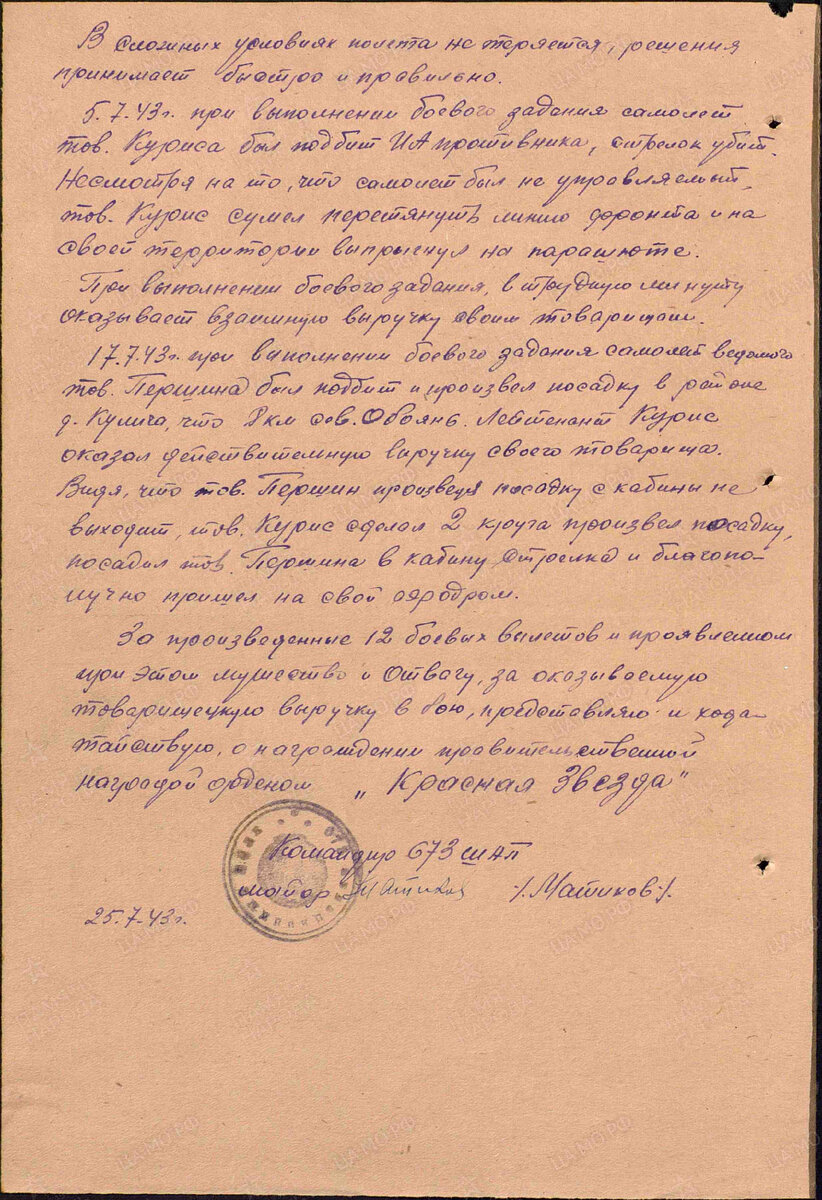 В сложных условиях полета не теряется, решения
принимает быстро и правильно.
5.7.43г. при выполнении боевого задания самолет
тов. Куриса был подбит ИА противника, стрелок убит.
Несмотря на то, что самолет был не управляемый,
тов. Курис сумел перетянуть линию фронта и на
своей территории выпрыгнул на парашюте.
При выполнении боевого задания, в трудную минуту
оказывает взаимную выручку своим товарищам.
17.7.43г. при выполнении боевого задания самолет ведомого
тов. Першина был подбит и произвел посадку в районе
д. Кулига, что км сев. Обоянь. Лейтенант Курис
оказал действительную выручку своего товарища.
Видя, что тов. Першин произведя посадку с кабины не
выходит, тов. Курис сделал 2 круга произвел посадку,
посадил тов. Першина в кабину стрелка и благопо-
лучно пришел на свой аэродром.
За произведенные 12 боевых вылетов и проявленном
при этом мужество и отвагу, за оказываемую
товарищецкую выручку в бою, представляю и хода-
тайствую, о награждении правительственной
наградой орденом „Красная Звезда"
Командир 673 ШАП
майор Матиков /.Матиков./.
25.7.43г.
ЦАМО.РФ